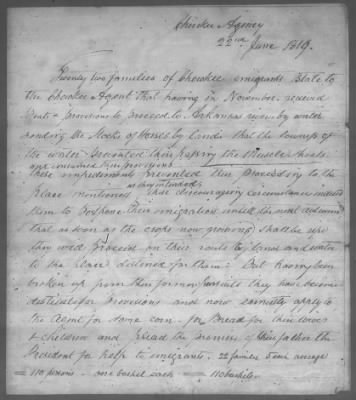 Cherokee Agency
22nd June 1819.
Twenty two families of Cherokee emigrants State to
the Cherokee Agent that having in November received
boat & provisions to proceed to Arkansas river by water
sending the stocks of horses by land: that the lowness of
the water prevented their passing the Muscle shoals
and consumed their provisions
These impediments prevented their proceeding to the
place mentioned as they intended These discouraging circumstances induced
them to postpone their emigration until the next autumn
that as soon as the crops now growing shall be ripe
they will proceed on their route by land and water
to the place destined for them: But having been
broken up from their former pursuits they have become
destitute for provisions and now earnestly apply to
the Agent for some corn for Bread for their wives
& children and plead the promise of their father the
President for help to emigrants. 22 families 5 each average
110 persons - one bushel each = 110 bushels